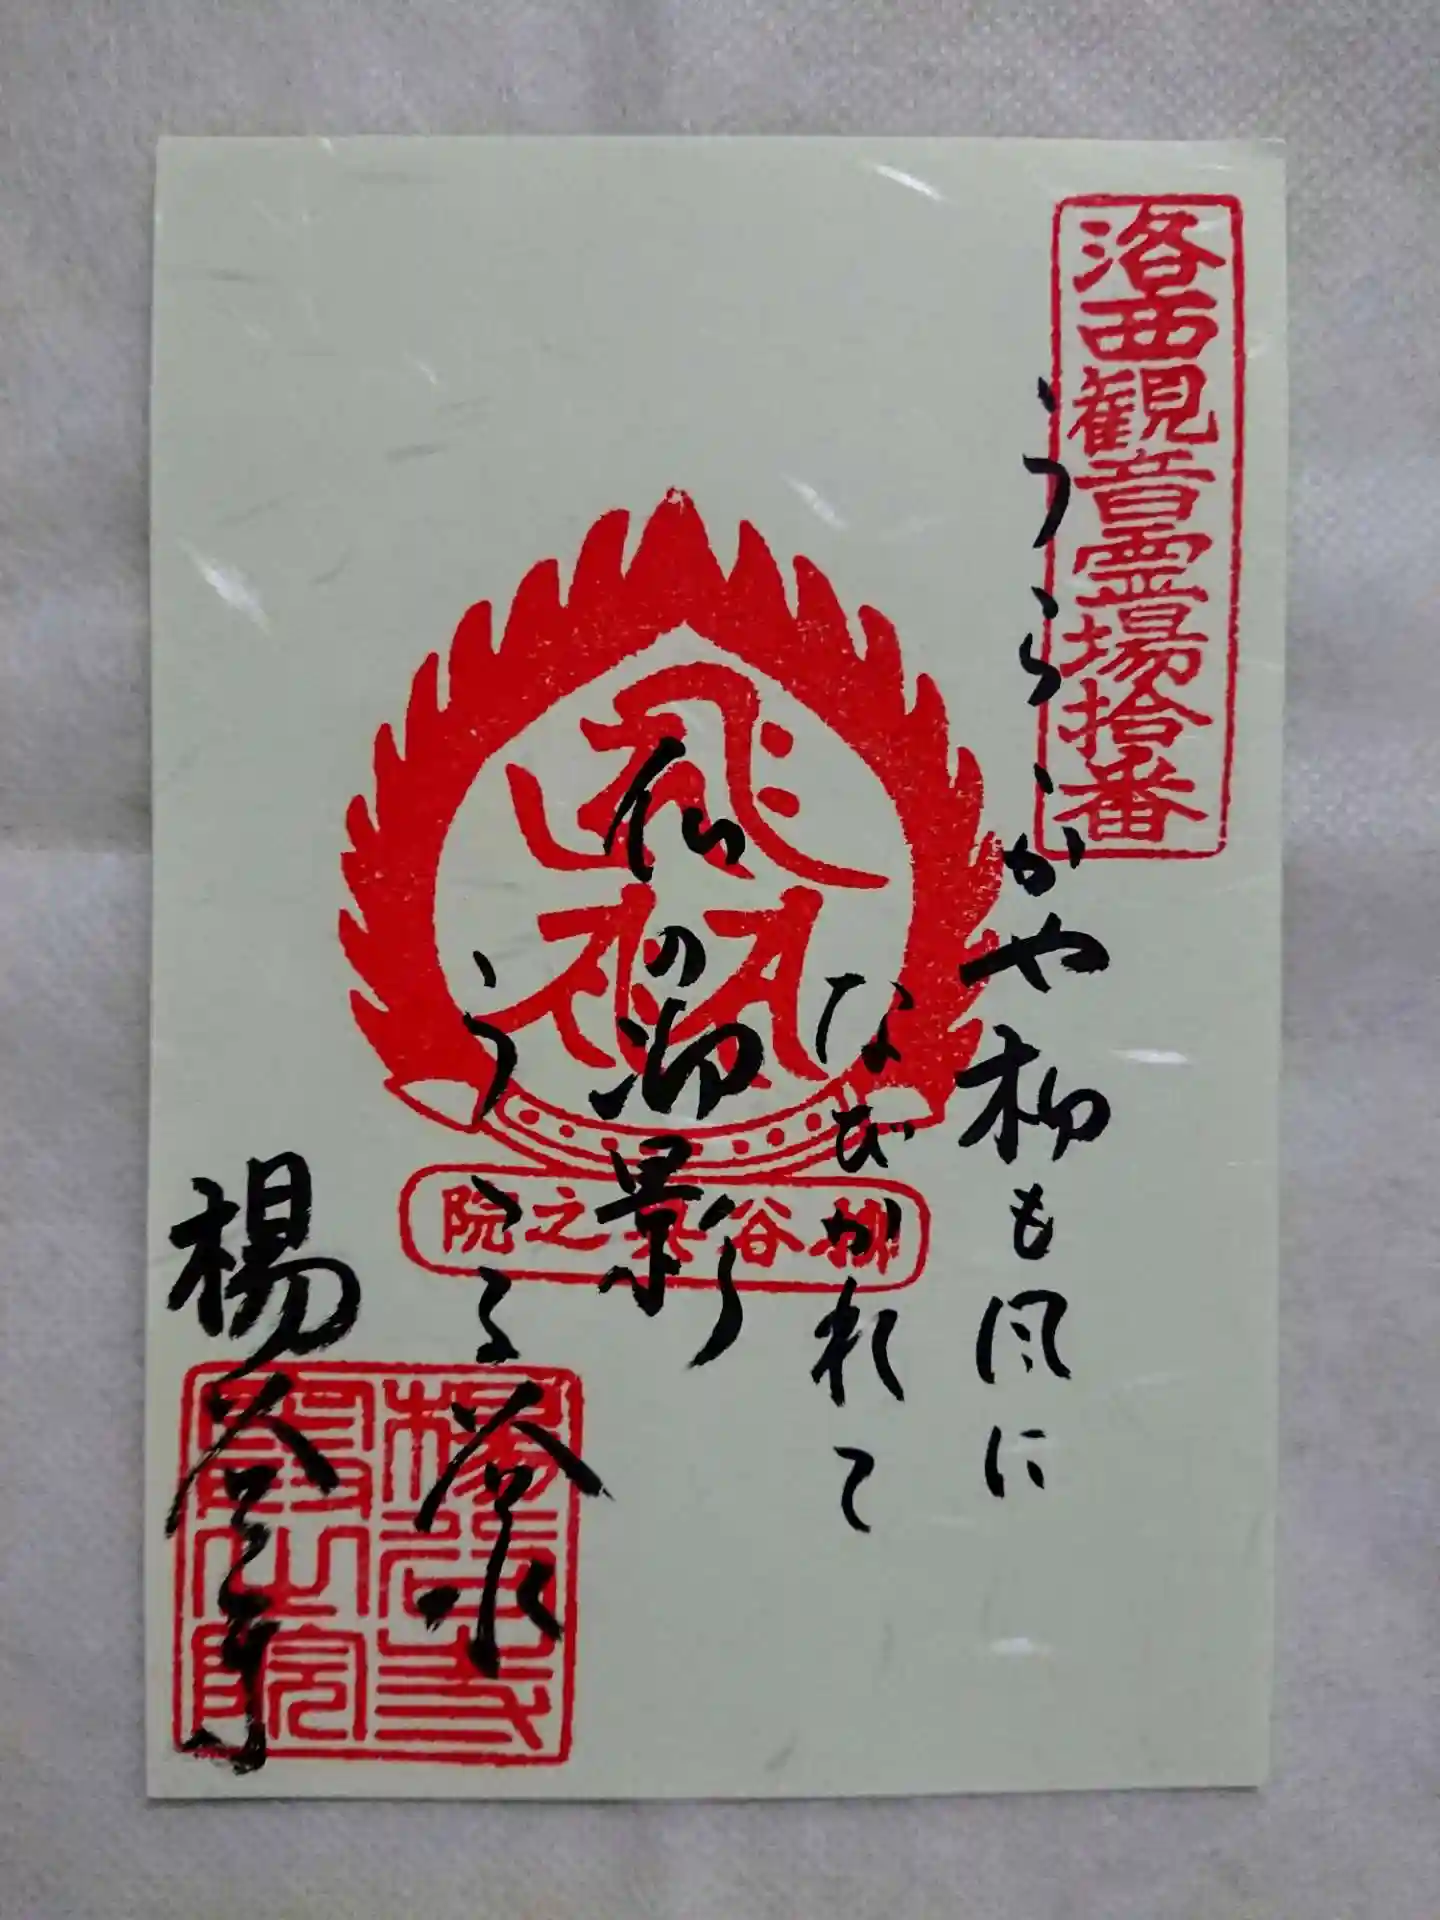 洛西観音霊場拾番
うららかや柳も風に
なびかれて
仏の御影
うつる谷水
楊谷寺
柳谷奥之院
楊谷寺
奥之院